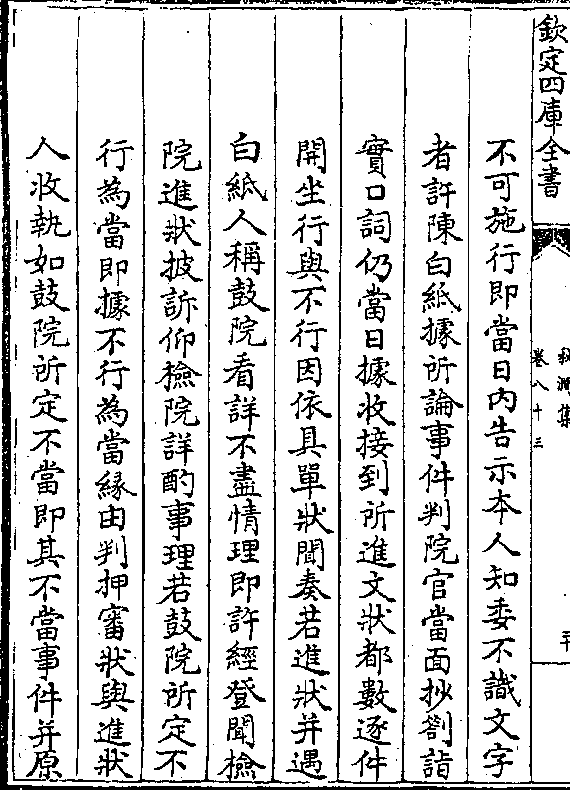 欽定四庫全書
秋澗集
卷八十三
不可施行即當日内告示本人知委不識文字
者許陳白紙據所論事件判院官當面抄劄詣
實口詞仍當日據收接到所進文狀都數逐件
開坐行與不行因依具單狀聞奏若進狀并遇
白紙人稱鼓院看詳不盡情理即許經登聞檢
院進狀披訴仰檢院詳酌事理若鼓院所定不
行為當即據不行為當縁由判押審狀與進狀
人收執如鼓院所定不當即其不當事件并原